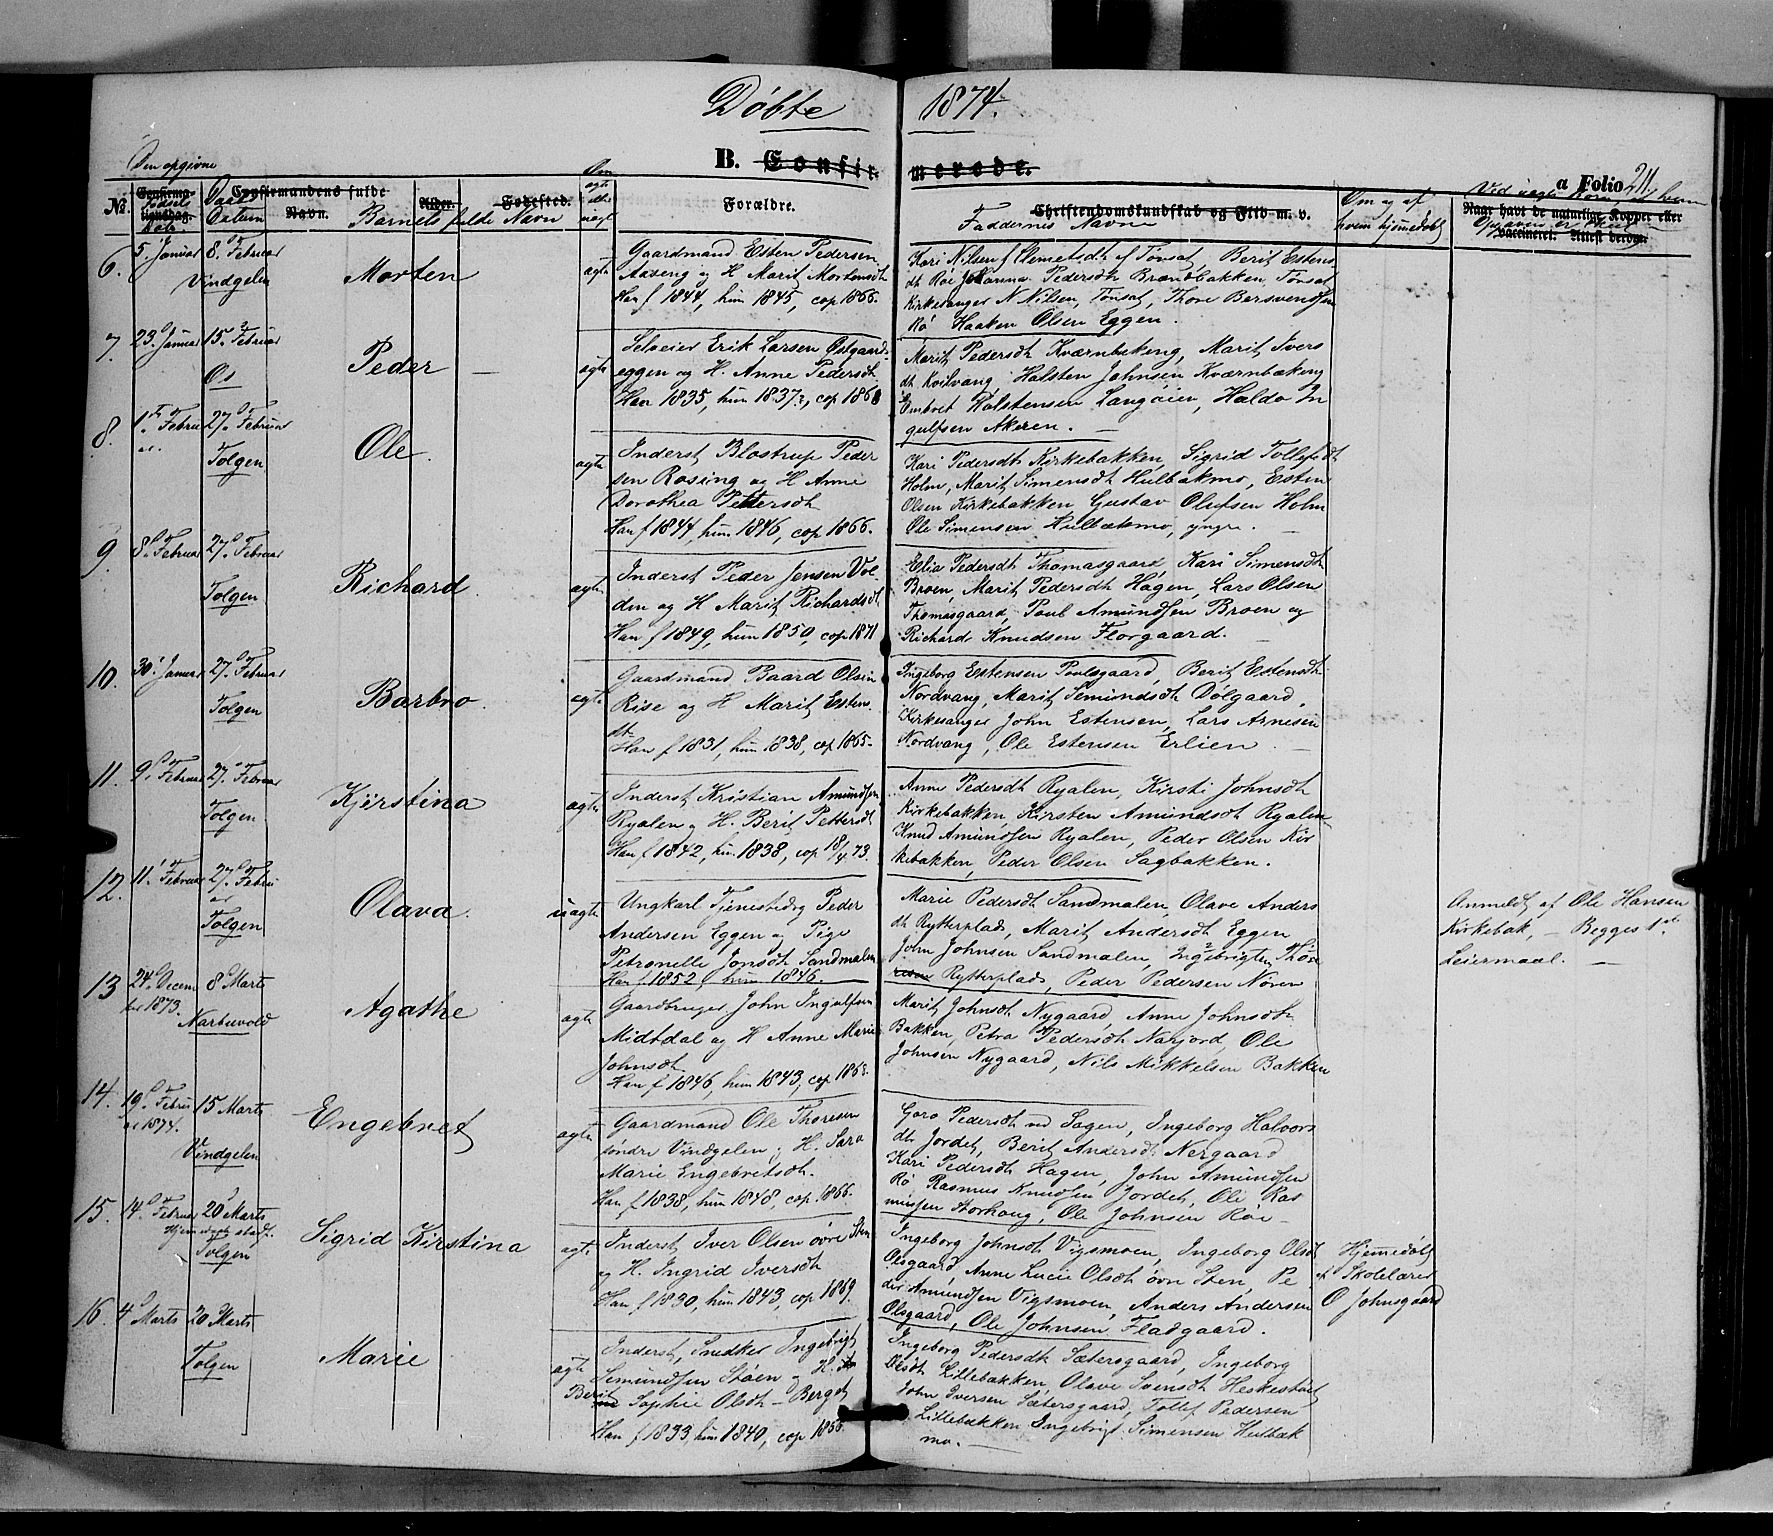 Döbte 1874.
B. Confirmerede.
a Folio 211.
Den opgivne
No.
Confirmationsdag.
Fødsels Dato
Daabs Datum
Confirmandens fulde Navn.
Alder.
Fødested.
Barnets fulde Navn
Om ægte ell. uægt.
Forældre.
Christendomskundskab og Flid m. v.
Faddernes Navne
Om og af
hvem hjemmedøbt
Naar havt de naturlige Kopper eller
vaccineret. Attest derom.
6.
5. Januar
8. Februar
Vindgelen
Morten
ægte
Gaardmand Esten Pedersen
Aaseng og H. Marit Mortensdt
Han f 1844, hun 1845, cop 1866.
Kari Nilsen f Clemetsdt af Tönset, Berit Estens
dt Röe Johanna Pedersdt Brændbakken, Tönset
Kirkesanger N Nilsen, Tönset, Thore Bersvendsen
Rö Haaken Olsen Eggen.
7
23. Januar
15. Februar
Os
Peder
ægte
Selveier Erik Larsen Östgaards
eggen og H. Anne Pedersdt
Han 1835, hun 1837, cop 1860
Marit Pedersdt Kværnbækeng, Marit Ivers
dt Kvilvang, Halsten Johnsen Kværnbækeng
Embret Halstensen Langöien, Haldo In
gulfsen Akeren.
8.
1. Februar
27. Februar
Tolgen
Ole.
ægte
Inderst Blostrup Peder
sen Rosing og H Anne
Dorothea Pettersdt
Han f 1844, hun 1846, cop 1866.
Kari Pedersdt Kirkebakken, Sigrid Tollefsdt
Holm, Marit Simensdt Hulbækmo, Esten
Olsen Kirkebakken, Gustav Olufsen Holm
Ole Simensen Hulbækmo, yngre.
9.
8. Februar
27. Februar
Tolgen
Richard
ægte
Inderst Peder Jensen Vol
den og H Marit Richardsdt
Han f 1849, hun 1850, cop 1871
Elia Pedersdt Thomasgaard, Kari Simensdt
Broen, Marit Pedersdt Hagen, Lars Olsen
Thomasgaard, Poul Amundsen Broen og
Richard Knudsen Florgaard.
10.
30. Januar
27. Februar
Tolgen
Barbro.
ægte
Gaardmand Baard Olsen
Rise og H Marit Estens
dt.
Han f 1831, hun 1838, cop 1865.
Ingeborg Estensen Poulsgaard, Berit Estensdt
Nordvang, Marit Semundsdt Dölgaard,
Kirkesanger John Estensen, Lars Arnesen
Nordvang, Ole Estensen Erlien.
11.
9. Februar
27. Februar
Tolgen
Kjerstina
ægte
Inderst Kristian Amundsen
Ryalen og H. Berit Pettersdt
Han f 1842, hun 1838, cop 18/4 73.
Anne Pedersdt Ryalen, Kirsti Johnsdt
Kirkebakken, Kirsten Amundsdt Ryalen
Knud Amundsen Ryalen, Peder Olsen Kir
kebakken, Peder Olsen Sagbakken.
12.
11. Februar
27. Februar
Tolgen
Olava.
uægte
Ungkarl Tjenestedrg Peder
Andersen Eggen og Pige
Petronelle Jonsdt Sandmælen
Han f 1852, hun 1846.
Marie Pedersdt Sandmælen, Olave Anders
dt Rytterplads, Marit Andersdt Eggen
John Johnsen Sandmælen, Ingebrigten Thore
Rytterplads, Peder Pedersen Nören
Anmeldt af Ole Hansen
Kirkebak, — Begges 1ste
Leiermaal. —
13
24. Decem
ber 1873.
8 Marts
Narbuvold
Agathe
ægte
Gaardbruger John Ingulfsen
Midtdal og H Anne Marie
Johnsdt
Han f 1846, hun 1843, cop 1865.
Marit Johnsdt Nygaard, Anne Johnsdt
Bakken, Petra Pedersdt Narjord, Ole
Johnsen Nygaard, Nils Mikkelsen Bakken
14.
19. Februar 1874.
15 Marts
Vindgelen
Engebret
ægte
Gaardmand Ole Thoresen
söndre Vindgelen, H. Sara
Marie Engebretsdt.
Han f 1838, hun 1848, cop 1866.
Goro Pedersdt ved Sagen, Ingeborg Halvors
dt Jordet, Berit Andersdt Nergaard
Kari Pedersdt Hagen, John Amundsen
Rö Rasmus Knudsen Jordet, Ole Ras
mussen Storhaug, Ole Johnsen Röe
15.
14. Februar
20 Marts
Tolgen
Sigrid Kirstina
ægte
Inderst Iver Olsen övre Sten
og H. Ingrid Iversdt
Han f 1830, hun 1843, cop 1869.
Ingeborg Johnsdt Vigsmoen, Ingeborg Olsdt
Olsgaard, Anne Lucie Olsdt övre Sten, Pe
der Amundsen Vigsmoen, Anders Andersen
Olsgaard, Ole Johnsen Fladgaard.
Hjemmedöbt
af Skolelærer
O Johnsgaard
16.
4 Marts
20 Marts
Tolgen
Marie
ægte
Inderst, Snedker Ingebrigt
Semundsen Stöen og H.
Berit Sophie Olsdt — Berget
Han f 1833, hun 1840, cop 1856.
Ingeborg Pedersdt Sætersgaard, Ingeborg
Olsdt Lillebakken, Olave Svensdt Heskestöet
John Iversen Sætersgaard, Tollef Pedersen
Lillebakken Ingebrigt Simensen Hulbæk
mo. —